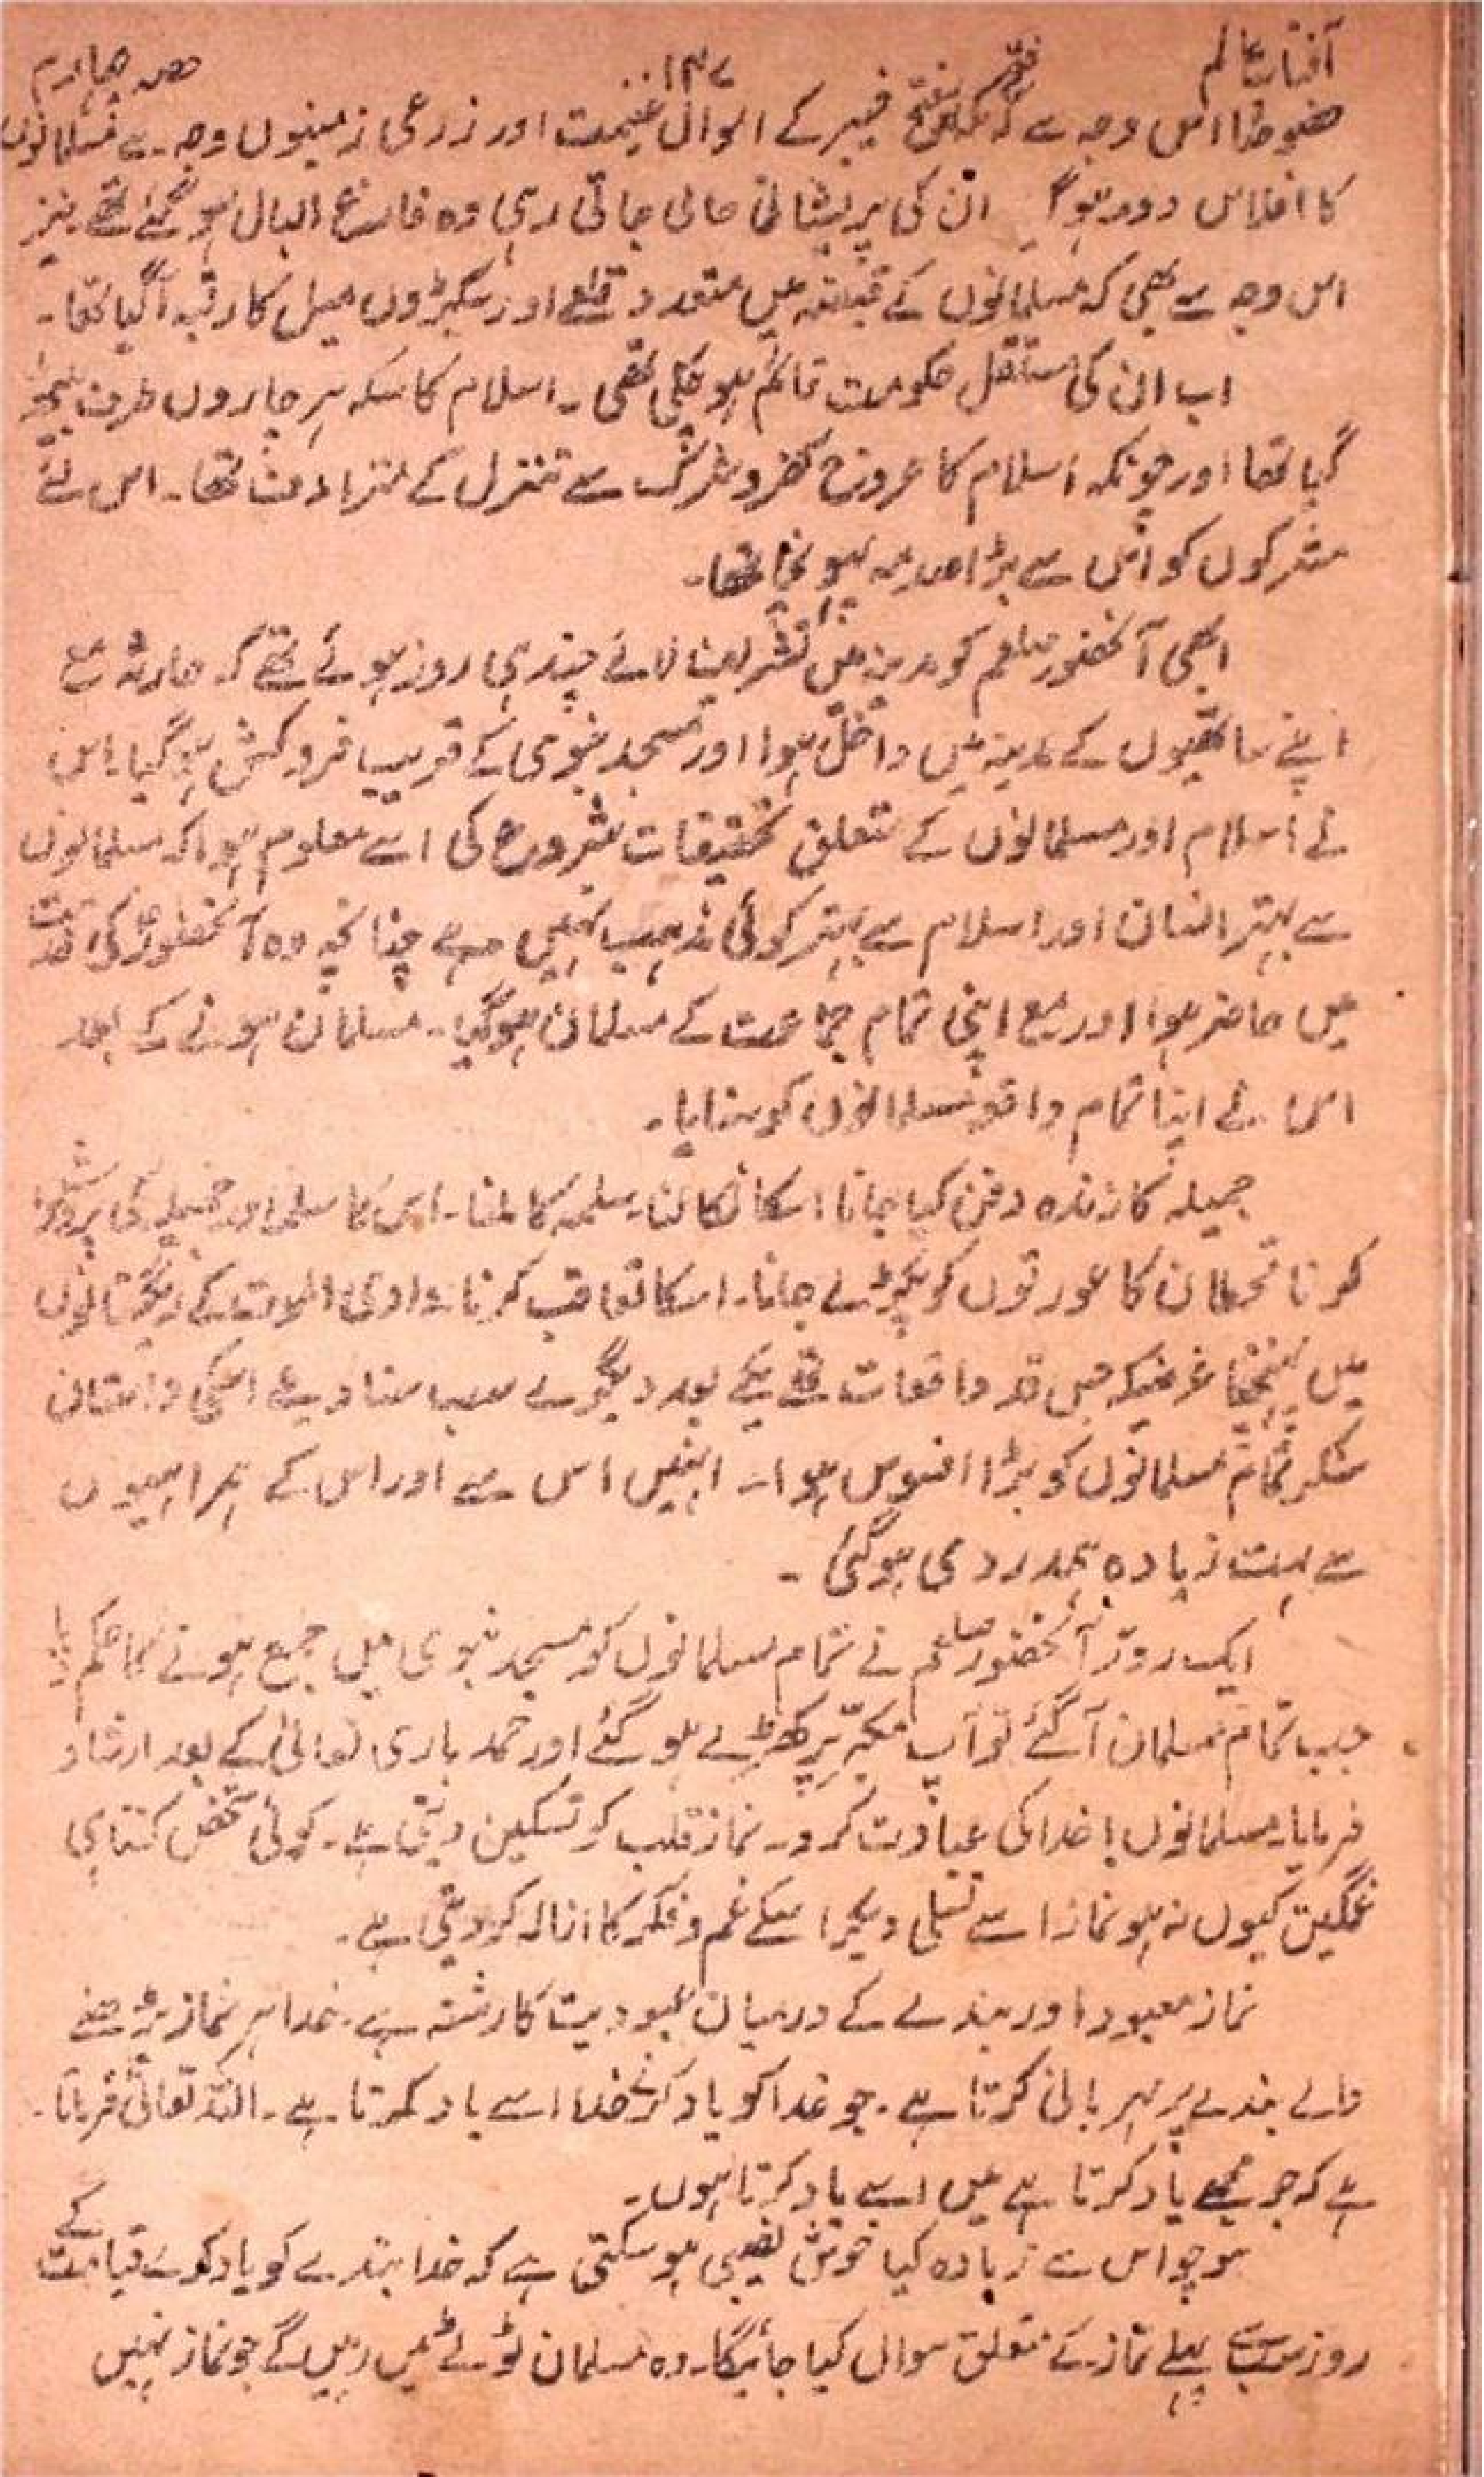 آفتاب عالم ۱۳۷ حصہ چہارم
خصوصًا اس وجہ سے کہ فتح خیبر کے اموال غنیمت اور زرعی زمینوں وجہ سے مسلمانوں
کا افلاس دور ہوگیا ان کی پریشانی حالی جاتی رہی وہ فارغ البال ہو گئے تھے نیز
اس وجہ سے بھی کہ مسلمانوں کے قبضہ میں متعدد قلعے اور سیکڑوں میل کا رقبہ آگیا تھا۔
اب ان کی مستقل حکومت قائم ہو چکی تھی۔ اسلام کا سکہ ہر چاروں طرف بیٹھ
گیا تھا اور چونکہ اسلام کا عروج کفر و شرک سے تنزل کے مترادف تھا۔ اس لئے
مشرکوں کو اس سے بڑا صدمہ پہونچا تھا۔
ابھی آنحضور صلعم کو مدینہ میں تشریف لائے چند ہی روز ہوئے تھے کہ حارث مع
اپنے ساتھیوں کے مدینہ میں داخل ہوا اور مسجد نبوی کے قریب فروکش ہوگیا۔ اس
نے اسلام اور مسلمانوں کے متعلق تحقیقات شروع کی اسے معلوم ہوا کہ مسلمانوں
سے بہتر انسان اور اسلام سے بہتر کوئی مذہب نہیں ہے چنانچہ وہ آنحضورؐ کی خدمت
میں حاضر ہوا اور مع اپنی تمام جماعت کے مسلمان ہوگیا۔ مسلمان ہونے کے بعد
اس نے اپنا تمام واقعہ مسلمانوں کو سنایا۔
جمیلہ کا زندہ دفن کیا جانا اسکا نکالنا۔ سلمہ کا ملنا۔ اس کا سلمہ اور جمیلہ کی پرورش
کرنا قحطان کا عورتوں کو پکڑ لے جانا۔ اسکا تعاقب کرنا۔ وادی الموت کے ریگستانوں
میں پہنچنا غرضیکہ جس قدر واقعات تھے یکے بعد دیگرے سب سنا دیئے اسکی داستان
سنکر تمام مسلمانوں کو بڑا افسوس ہوا۔ انہیں اس سے اور اس کے ہمراہیوں
سے بہت زیادہ ہمدردی ہوگئی ۔
ایک روز آنحضور صلعم نے تمام مسلمانوں کو مسجد نبوی میں جمع ہونے کا حکم دیا
جب تمام مسلمان آگئے تو آپ کھڑے ہو گئے اور حمد باری تعالیٰ کے بعد ارشاد
فرمایا۔ مسلمانوں! خدا کی عبادت کرو۔ نماز قلب کو تسکین دیتی ہے۔ کوئی شخص کتنا ہی
غمگین کیوں نہ ہو نماز اسے تسلی دیکر اسکے غم و فکر کا ازالہ کر دیتی ہے۔
نماز معبود اور بندے کے درمیان عبودیت کا رشتہ ہے۔ خدا ہر نماز پڑھنے
والے بندے پر مہربانی کرتا ہے۔ جو خدا کو یاد کرے خدا اسے یاد کرتا ہے۔ اللہ تعالیٰ فرماتا
ہے کہ جو مجھے یاد کرتا ہے میں اسے یاد کرتا ہوں۔
سوچو اس سے زیادہ کیا خوش نصیبی ہو سکتی ہے کہ خدا بندے کو یاد کرے قیامت کے
روز سب سے پہلے نماز کے متعلق سوال کیا جائیگا۔ وہ مسلمان ٹوٹے میں رہیں گے جو نماز نہیں